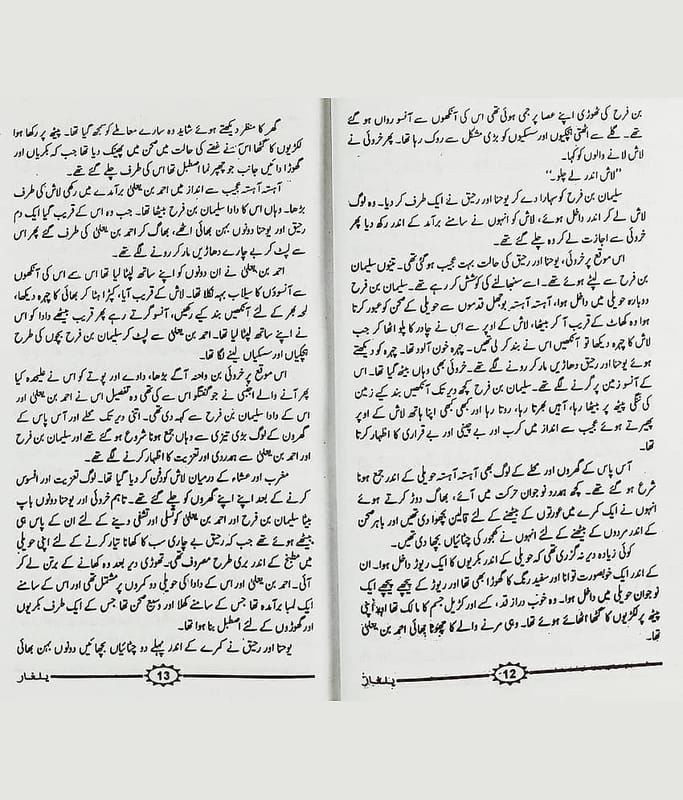 بن فرح کی ٹھوڑی اپنے عصا پر جمی ہوئی تھی اس کی آنکھوں سے آنسو رواں ہو گئے
تھے۔ گلے سے اٹھتی ہچکیوں اور سسکیوں کو بڑی مشکل سے روک رہا تھا۔ پھر خروئی نے
لاش لانے والوں کو کہا۔
"لاش اندر لے چلو۔"
سلیمان بن فرح کو سہارا دے کر یوحنا اور رحیق نے ایک طرف کر دیا۔ وہ لوگ
لاش لے کر اندر داخل ہوئے، لاش کو انہوں نے سامنے برآمدے کے اندر رکھ دیا پھر
خروئی سے اجازت لے کر وہ چلے گئے تھے۔
اس موقع پر خروئی، یوحنا اور رحیق کی حالت بہت عجیب ہو گئی تھی۔ تینوں سلیمان
بن فرح سے لپٹے ہوئے تھے۔ اسے سنبھالنے کی کوشش کر رہے تھے۔ سلیمان بن فرح
دوبارہ حویلی میں داخل ہوا، آہستہ آہستہ بوجھل قدموں سے حویلی کے صحن کو عبور کرتا
ہوا وہ کھاٹ کے قریب آ کر بیٹھا، لاش کے اوپر سے اس نے چادر کا پلو اٹھا کر جب
لاش کا چہرہ دیکھا تو آنکھیں اس نے بند کر لی تھیں۔ چہرہ خون آلود تھا۔ چہرہ کو دیکھتے
ہوئے یوحنا اور رحیق دھاڑیں مار کر رونے لگے تھے۔ خروئی بھی وہاں بیٹھ گیا تھا۔ اس
کے آنسو زمین پر گرنے لگے تھے۔ سلیمان بن فرح کچھ دیر تک آنکھیں بند کیے زمین
کی ننگی پیٹھ پر بیٹھا رہا، آہیں بھرتا رہا، روتا رہا اور کبھی کبھی اپنا ہاتھ لاش کے اوپر
پھیرتے ہوئے عجیب سے انداز میں کرب اور بے چینی اور بے قراری کا اظہار کرتا
تھا۔
آس پاس کے گھروں اور محلے کے لوگ بھی آہستہ آہستہ حویلی کے اندر جمع ہونا
شرع ہو گئے تھے۔ کچھ ہمدرد نوجوان حرکت میں آئے، بھاگ دوڑ کرتے ہوئے
انہوں نے ایک کمرے میں عورتوں کے بیٹھنے کے لئے قالین بچھوا دی تھیں اور باہر صحن
کے اندر مردوں کے بیٹھنے کے لئے انہوں نے کھجور کی چٹائیاں بچھوا دی تھیں۔
کوئی زیادہ دیر نہ گزری تھی کہ حویلی کے اندر بکریوں کا ایک ریوڑ داخل ہوا۔ ان
کے اندر ایک خوبصورت توانا اور سفید رنگ کا گھوڑا بھی تھا اور ریوڑ کے پیچھے پیچھے ایک
نوجوان حویلی میں داخل ہوا۔ وہ خوب دراز قد، کسے اور کڑیل جسم کا مالک تھا اور اپنی
پیٹھ پر لکڑیوں کا گٹھا اٹھائے ہوئے تھا۔ وہی مرنے والے کا چھوٹا بھائی احمد بن یعلیٰ
تھا۔
12 یلغار
گھر کا منظر دیکھتے ہوئے شاید وہ سارے معاملے کو سمجھ گیا تھا۔ پیٹھ پر رکھا ہوا
لکڑیوں کا گٹھا اس نے غصے کی حالت میں صحن میں پھینک دیا تھا جب کہ بکریاں اور
گھوڑا دائیں جانب جو چھپر نما اصطبل تھا اس کی طرف چلے گئے تھے۔
آہستہ آہستہ عجیب سے انداز میں احمد بن یعلیٰ برآمدے میں رکھی لاش کی طرف
بڑھا۔ وہاں اس کا دادا سلیمان بن فرح بیٹھا تھا۔ جب وہ اس کے قریب گیا ایک دم
رحیق اور یوحنا دونوں بہن بھائی اٹھے، بھاگ کر احمد بن یعلیٰ کی طرف گئے پھر اس
سے لپٹ کر بے چارے دھاڑیں مار کر رونے لگے تھے۔
احمد بن یعلیٰ نے ان دونوں کو اپنے ساتھ لپٹا لیا تھا اس سے اس کی آنکھوں
سے آنسوؤں کا سیلاب بہہ نکلا تھا۔ لاش کے قریب آیا، کپڑا ہٹا کر بھائی کا چہرہ دیکھا،
لمحہ بھر کے لئے آنکھیں بند کیے رکھیں، آنسو گرتے رہے پھر قریب بیٹھے دادا کو اس
نے اپنے ساتھ لپٹا لیا تھا۔ احمد بن یعلیٰ سے لپٹ کر سلیمان بن فرح بچوں کی طرح
ہچکیاں اور سسکیاں لینے لگا تھا۔
اس موقع پر خروئی بن واحہ آگے بڑھا، دادے اور پوتے کو اس نے علیحدہ کیا
پھر آنے والے اجنبی نے جو گفتگو اس سے کی تھی وہ تفصیل اس نے احمد بن یعلیٰ اور
اس کے دادا سلیمان بن فرح سے کہہ دی تھی۔ اتنی دیر تک محلے اور آس پاس کے
گھروں کے لوگ بڑی تیزی سے وہاں جمع ہونا شروع ہو گئے تھے اور سلیمان بن فرح
اور احمد بن یعلیٰ سے ہمدردی اور تعزیت کا اظہار کرنے لگے تھے۔
مغرب اور عشاء کے درمیان لاش کو دفن کر دیا گیا تھا۔ لوگ تعزیت اور افسوس
کرنے کے بعد اپنے اپنے گھروں کو چلے گئے تھے۔ تاہم خروئی اور یوحنا دونوں باپ
بیٹا سلیمان بن فرح اور احمد بن یعلیٰ کو تسلی اور تشفی دینے کے لئے ان کے پاس ہی
بیٹھے ہوئے تھے جب کہ رحیق بے چاری سب کا کھانا تیار کرنے کے لئے اپنی حویلی
میں مطبخ کے اندر بری طرح مصروف تھی۔ تھوڑی دیر بعد وہ کھانے کے برتن لے کر
آئی۔ احمد بن یعلیٰ اور اس کے دادا کی حویلی دو کمروں پر مشتمل تھی اور اس کے سامنے
ایک لمبا برآمدہ تھا جس کے سامنے کھلا اور وسیع صحن تھا جس کے ایک طرف بکریوں
اور گھوڑوں کے لئے اصطبل بنا ہوا تھا۔
یوحنا اور رحیق نے کمرے کے اندر پہلے دو چٹائیاں بچھائیں دونوں بہن بھائی
13 یلغار